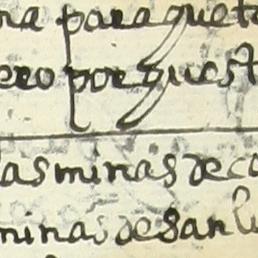 ra para que t
ero por quest
las minas de co
minas de san lu